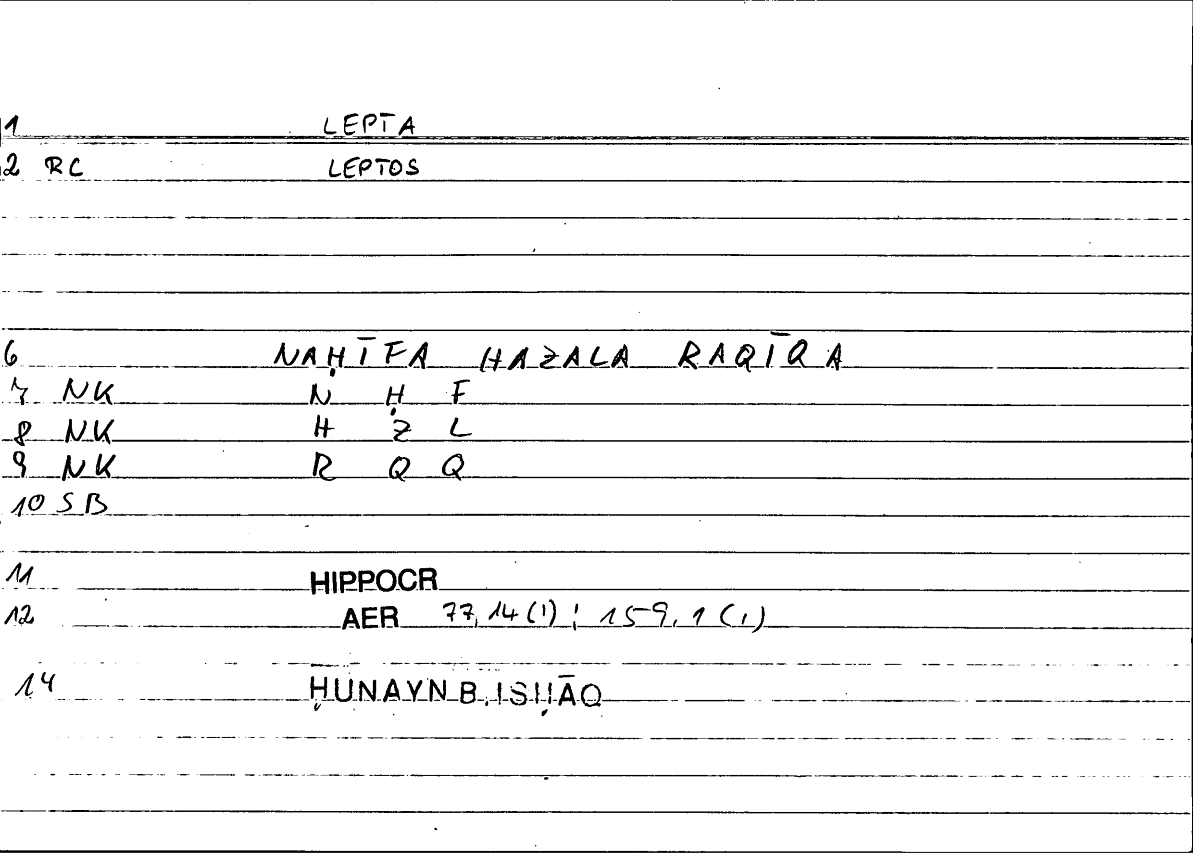 1 LEPTA
2 RC LEPTOS
6 NAḤĪFA HAZALA RAQĪQA
7 NK N Ḥ F
8 NK H Z L
9 NK R Q Q
10 SB
11 HIPPOCR
12 AER 77,14(1); 159,1(1)
14 ḤUNAYN B. ISḤĀQ